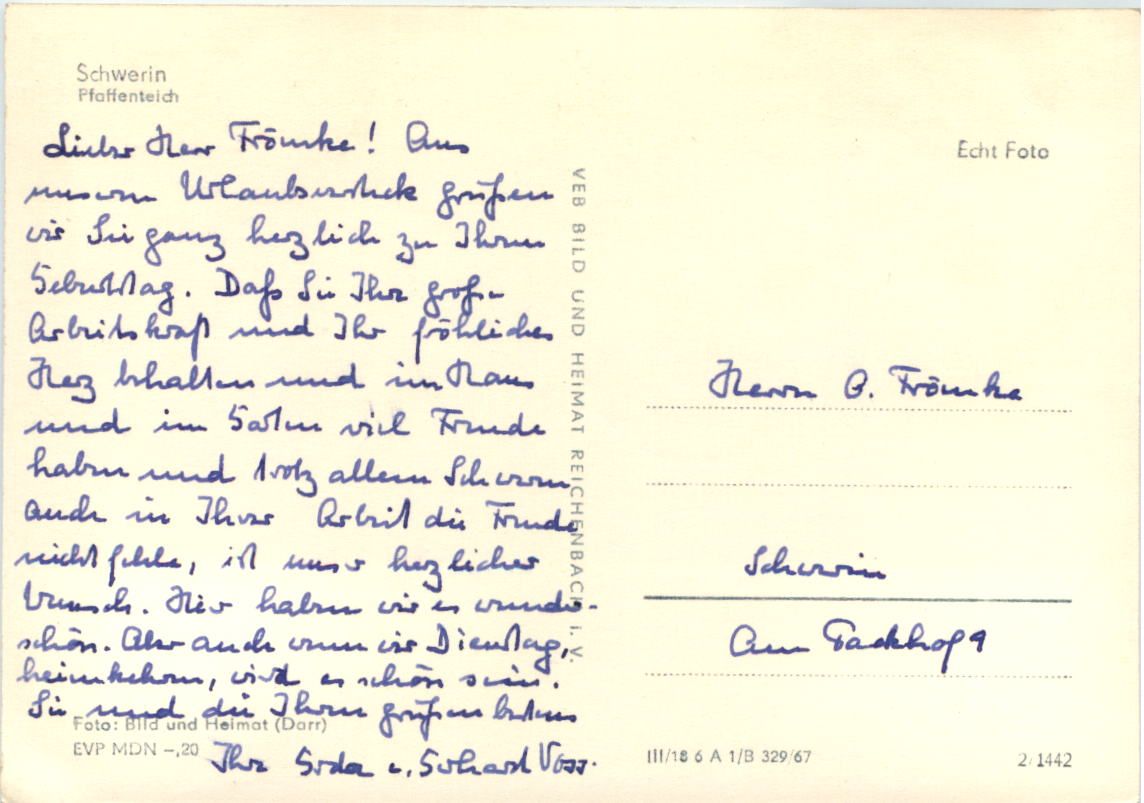 Schwerin
Pfaffenteich
Lieber Herr Frömke! Aus
unserm Urlaubsversteck grüßen
wir Sie ganz herzlich zu Ihrem
Geburtstag. Daß Sie Ihre große
Arbeitskraft und Ihr fröhliches
Herz behalten und im Haus
und im Garten viel Freude
haben und trotz allem Schweren
auch in Ihrer Arbeit die Freude
nicht fehle, ist unser herzlicher
Wunsch. Hier haben wir es wunder-
schön. Aber auch wenn wir Dienstag,
heimkehren, wird es schön sein.
Sie und die Ihren grüßen bestens
Ihre Gerda u. Gerhard Voss.
Foto: Bild und Heimat (Darr)
EVP MDN –,20
VEB BILD UND HEIMAT REICHENBACH i. V.
Echt Foto
Herrn G. Frömke
Schwerin
Am Packhof 9
III/18 6 A 1/B 329/67
2/1442